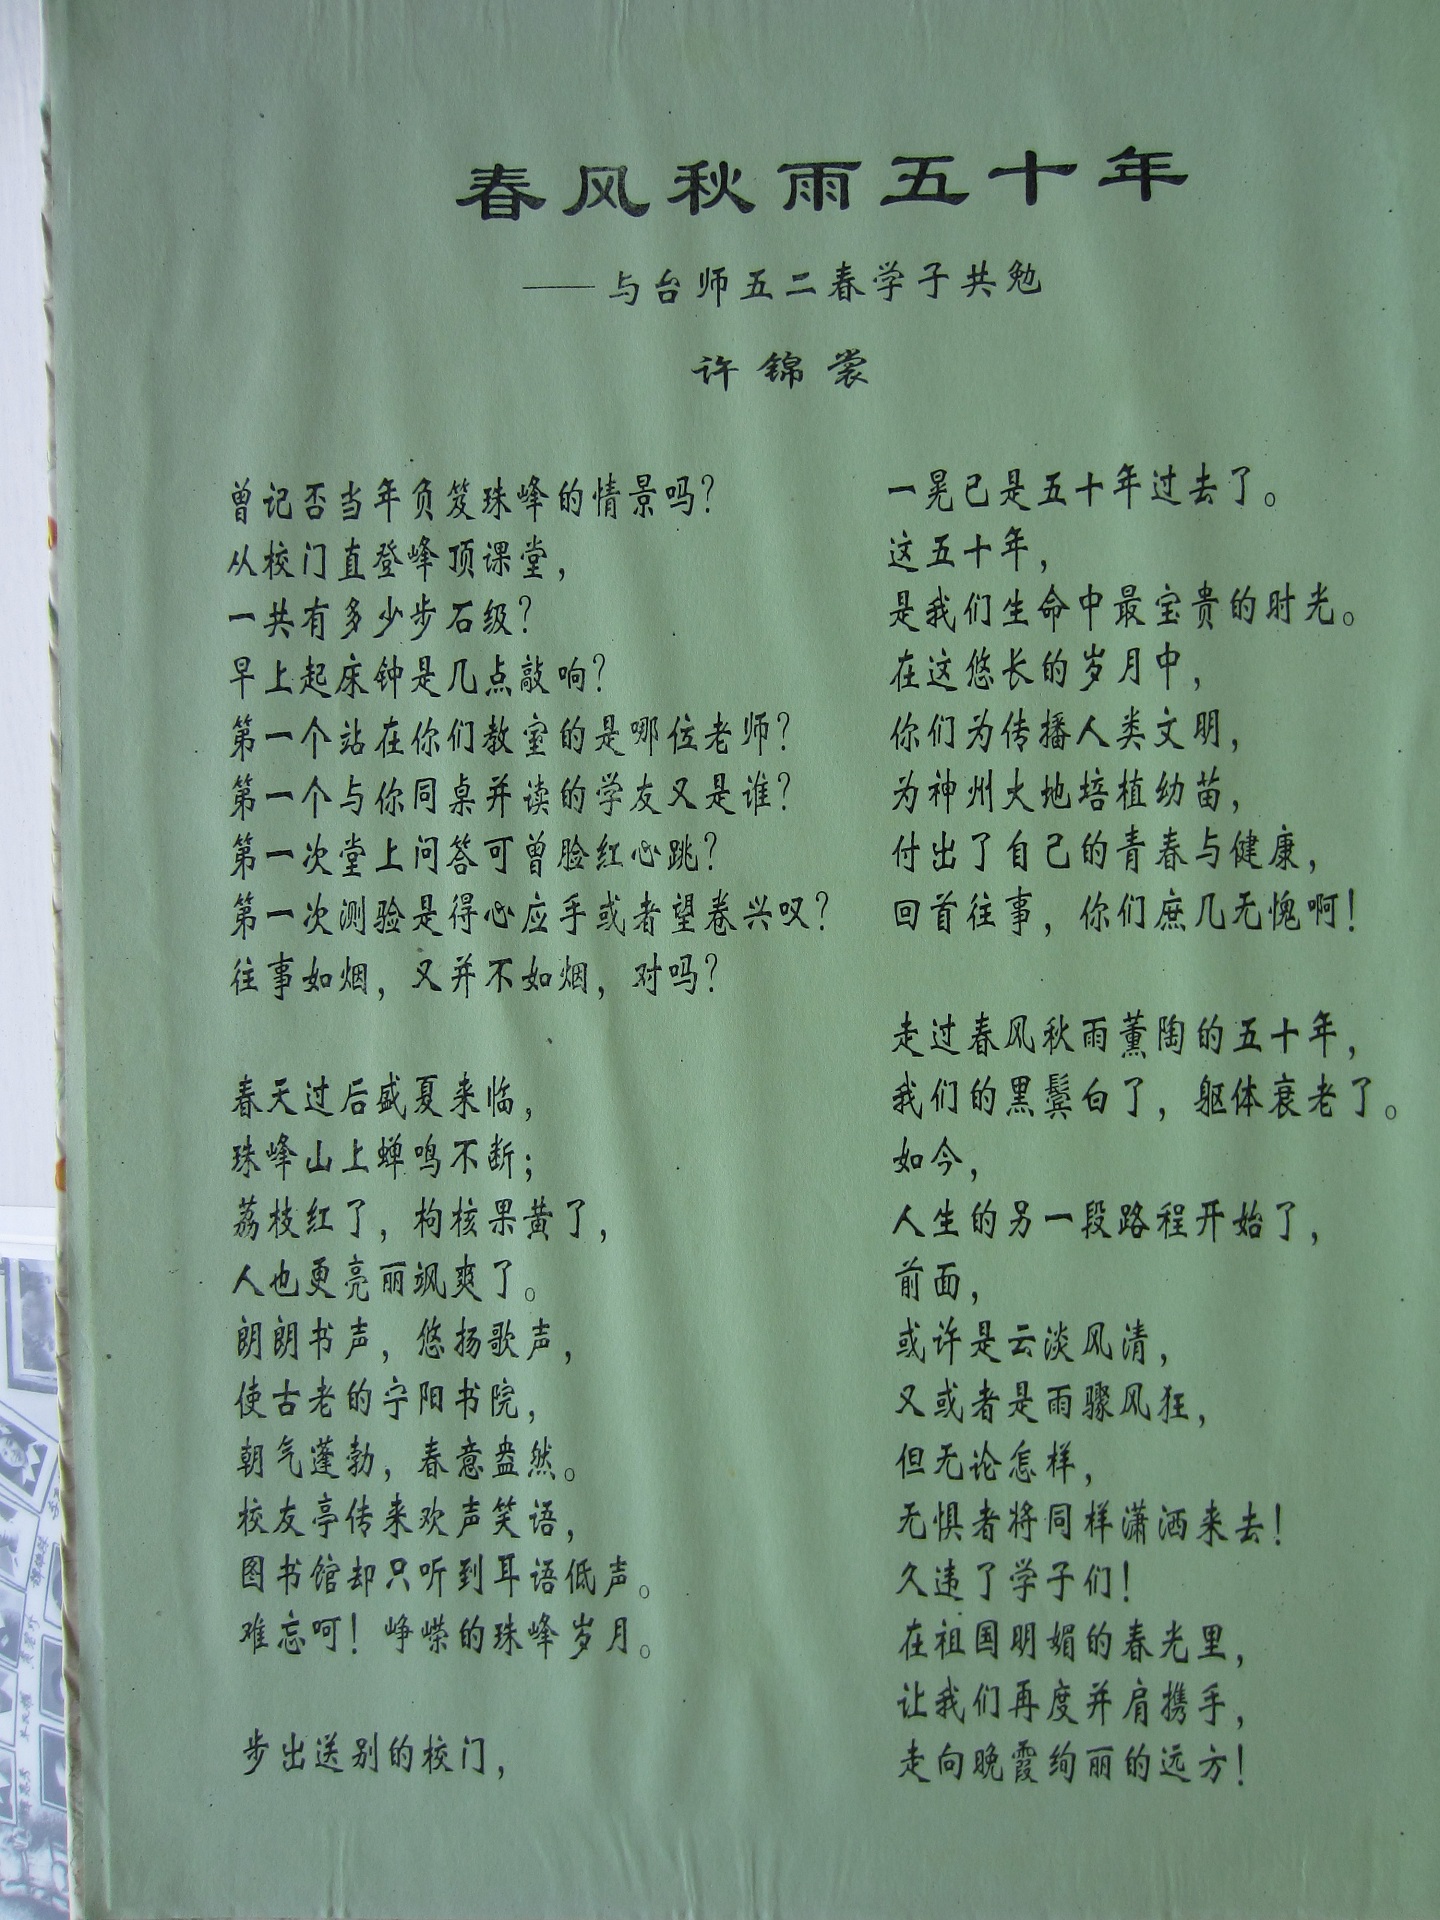 春风秋雨五十年
——与台师五二春学子共勉
许锦裳
曾记否当年负笈珠峰的情景吗？
从校门直登峰顶课堂，
一共有多少步石级？
早上起床钟是几点敲响？
第一个站在你们教室的是哪位老师？
第一个与你同桌并读的学友又是谁？
第一次堂上问答可曾脸红心跳？
第一次测验是得心应手或者望卷兴叹？
往事如烟，又并不如烟，对吗？
春天过后盛夏来临，
珠峰山上蝉鸣不断；
荔枝红了，枸核果黄了，
人也更亮丽飒爽了。
朗朗书声，悠扬歌声，
使古老的宁阳书院，
朝气蓬勃，春意盎然。
校友亭传来欢声笑语，
图书馆却只听到耳语低声。
难忘呵！峥嵘的珠峰岁月。
步出送别的校门，
一晃已是五十年过去了。
这五十年，
是我们生命中最宝贵的时光。
在这悠长的岁月中，
你们为传播人类文明，
为神州大地培植幼苗，
付出了自己的青春与健康，
回首往事，你们庶几无愧啊！
走过春风秋雨薰陶的五十年，
我们的黑鬓白了，躯体衰老了。
如今，
人生的另一段路程开始了，
前面，
或许是云淡风清，
又或者是雨骤风狂，
但无论怎样，
无惧者将同样潇洒来去！
久违了学子们！
在祖国明媚的春光里，
让我们再度并肩携手，
走向晚霞绚丽的远方！